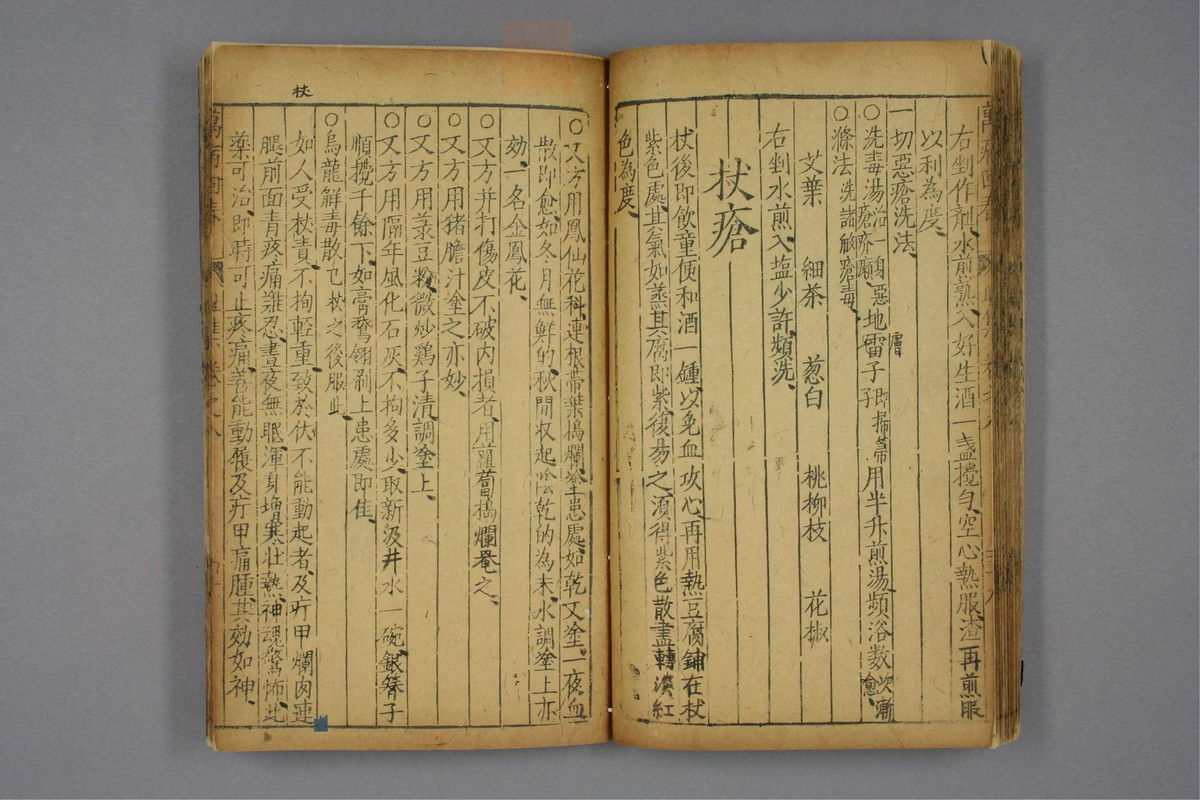 右剉作劑水煎熟入好生酒一盞攪勻空心熱服渣再煎服
以利為度
一切惡瘡洗法
〇洗毒湯治瘡疥癩身惡膚地雷子即掃箒子用半升煎湯頻浴數次漸愈
〇滌法洗諸般瘡毒
艾葉 細茶 葱白 桃柳枝 花椒
右剉水煎入塩少許頻洗
杖瘡
杖後即飲童便和酒一鍾以免血攻心再用熱豆腐鋪在杖
紫色處其氣如蒸其腐即紫復易之須得紫色散盡轉淡紅
色為度
〇又方用鳳仙花科連根帶葉搗爛塗患處如乾又塗一夜血
散即愈如冬月無鮮的秋間収起陰乾的為末水調塗上亦
効一名金鳳花
〇又方并打傷皮不破內損者用蘿蔔搗爛罨之
〇又方用猪膽汁塗之亦妙
〇又方用菉豆粉微炒鷄子清調塗上
〇又方用隔年風化石灰不拘多少取新汲井水一碗銀簪子
順攪千餘下如膏鵞翎刷上患處即佳
〇烏龍解毒散已杖之後服此
如人受杖責不拘輕重致於伏不能動起者及疔甲爛肉連
腿前面青疼痛難忍晝夜無眠渾身増寒壮熱神魂驚怖此
藥可治即時可止疼痛善能動履及疔甲痛腫其効如神
杖
萬病回春